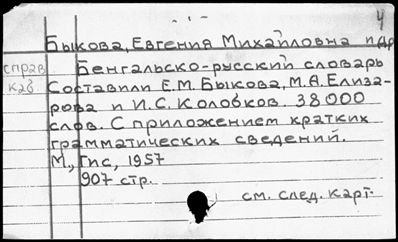 4
Быкова, Евгения Михайловна и др
справ Бенгальско-русский словарь
каб Составили Е.М. Быкова, М.А. Елиза-
рова и И.С. Колобков. 38 000
слов. С приложением кратких
грамматических сведений.
М., Гис, 1957
907 стр.
см. след. карт.